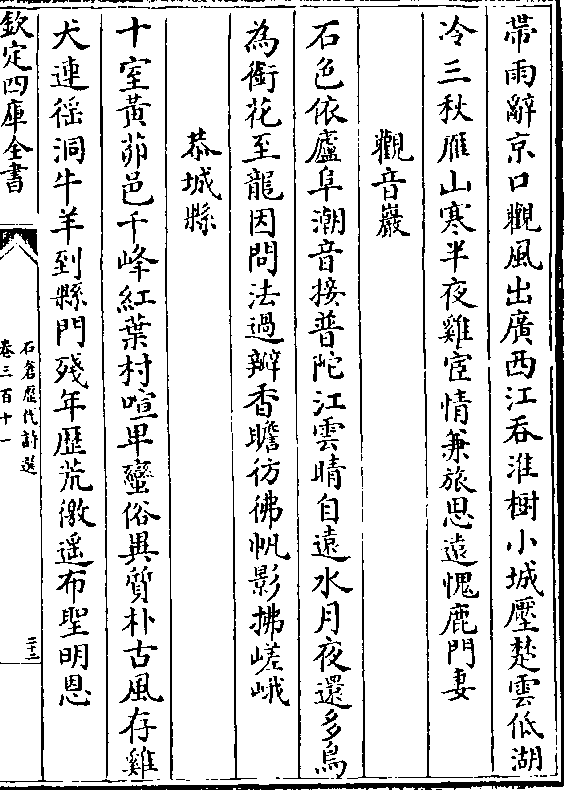 帶雨辭京口觀風出廣西江吞淮樹小城壓楚雲低湖
冷三秋雁山寒半夜雞宦情兼旅思遠愧鹿門妻
觀音巖
石色依廬阜潮音接普陀江雲晴自遠水月夜還多鳥
為銜花至龍因問法過瓣香瞻彷彿帆影拂嵯峨
恭城縣
十室黃茆邑千峰紅葉村喧卑蠻俗異質朴古風存雞
犬連徭洞牛羊到縣門殘年歴荒徼遥布聖明恩
欽定四庫全書
石倉歴代詩選
卷三百十一
二十三